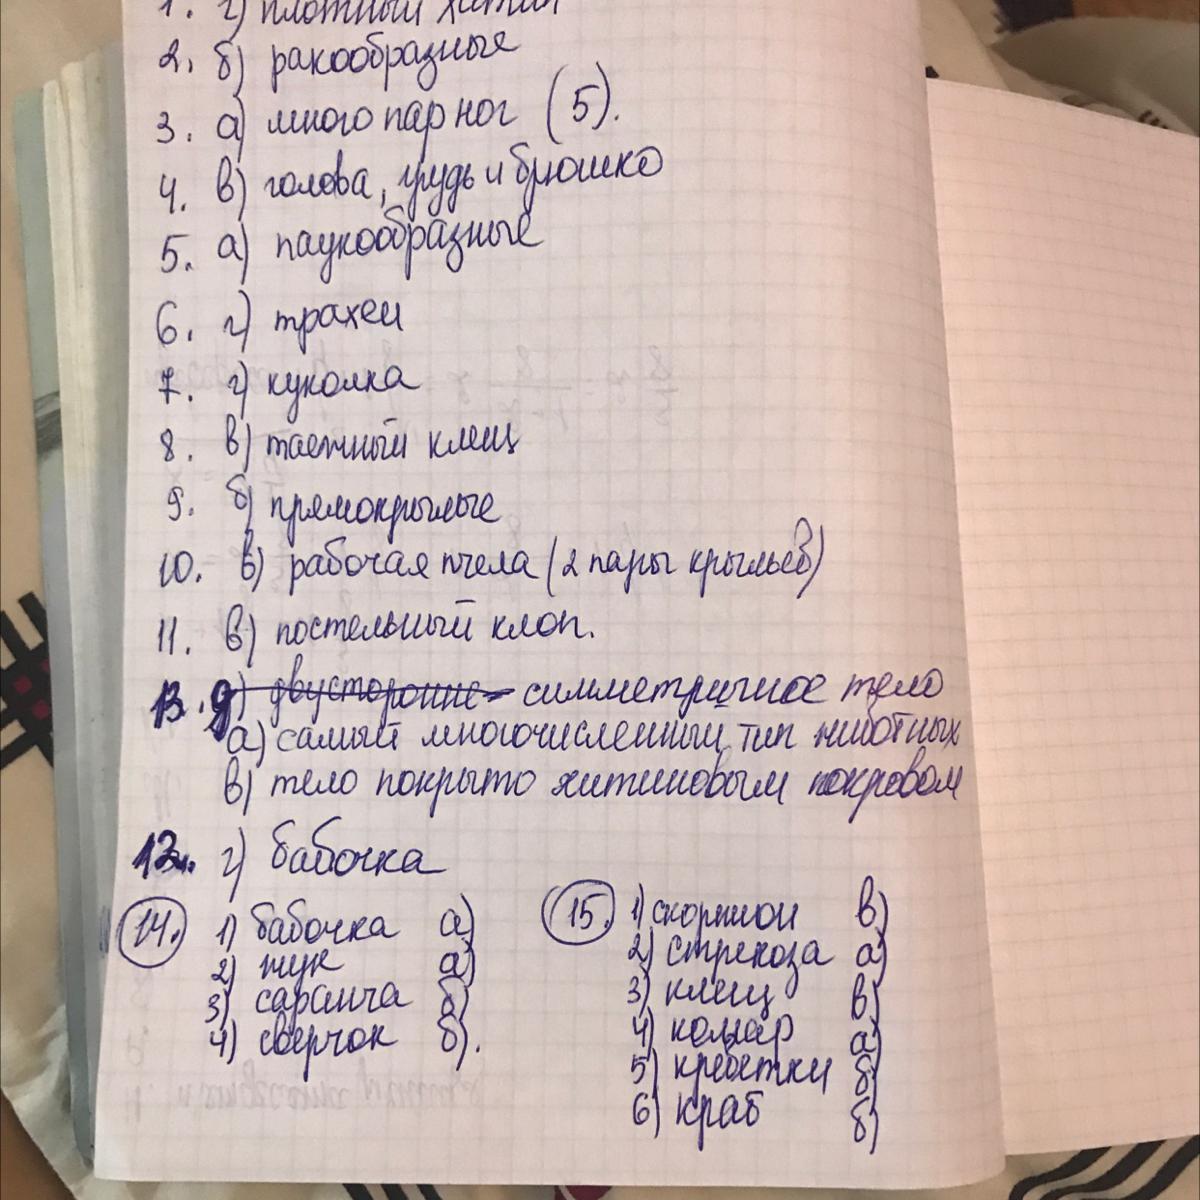 1. г) плотный хитин
2. б) ракообразные
3. а) много пар ног (5).
4. в) голова, грудь и брюшко
5. а) паукообразные
6. г) трахеи
7. г) куколка
8. в) таежный клещ
9. б) прямокрылые
10. в) рабочая пчела (2 пары крыльев)
11. в) постельный клоп.
13. д) двусторонне- симметричное тело
а) самый многочисленный тип животных
в) тело покрыто хитиновым покровом
12. г) бабочка
14. 1) бабочка а)
2) жук а)
3) саранча б)
4) сверчок б).
15. 1) скорпион в)
2) стрекоза а)
3) клещ в)
4) комар а)
5) креветки б)
6) краб б)